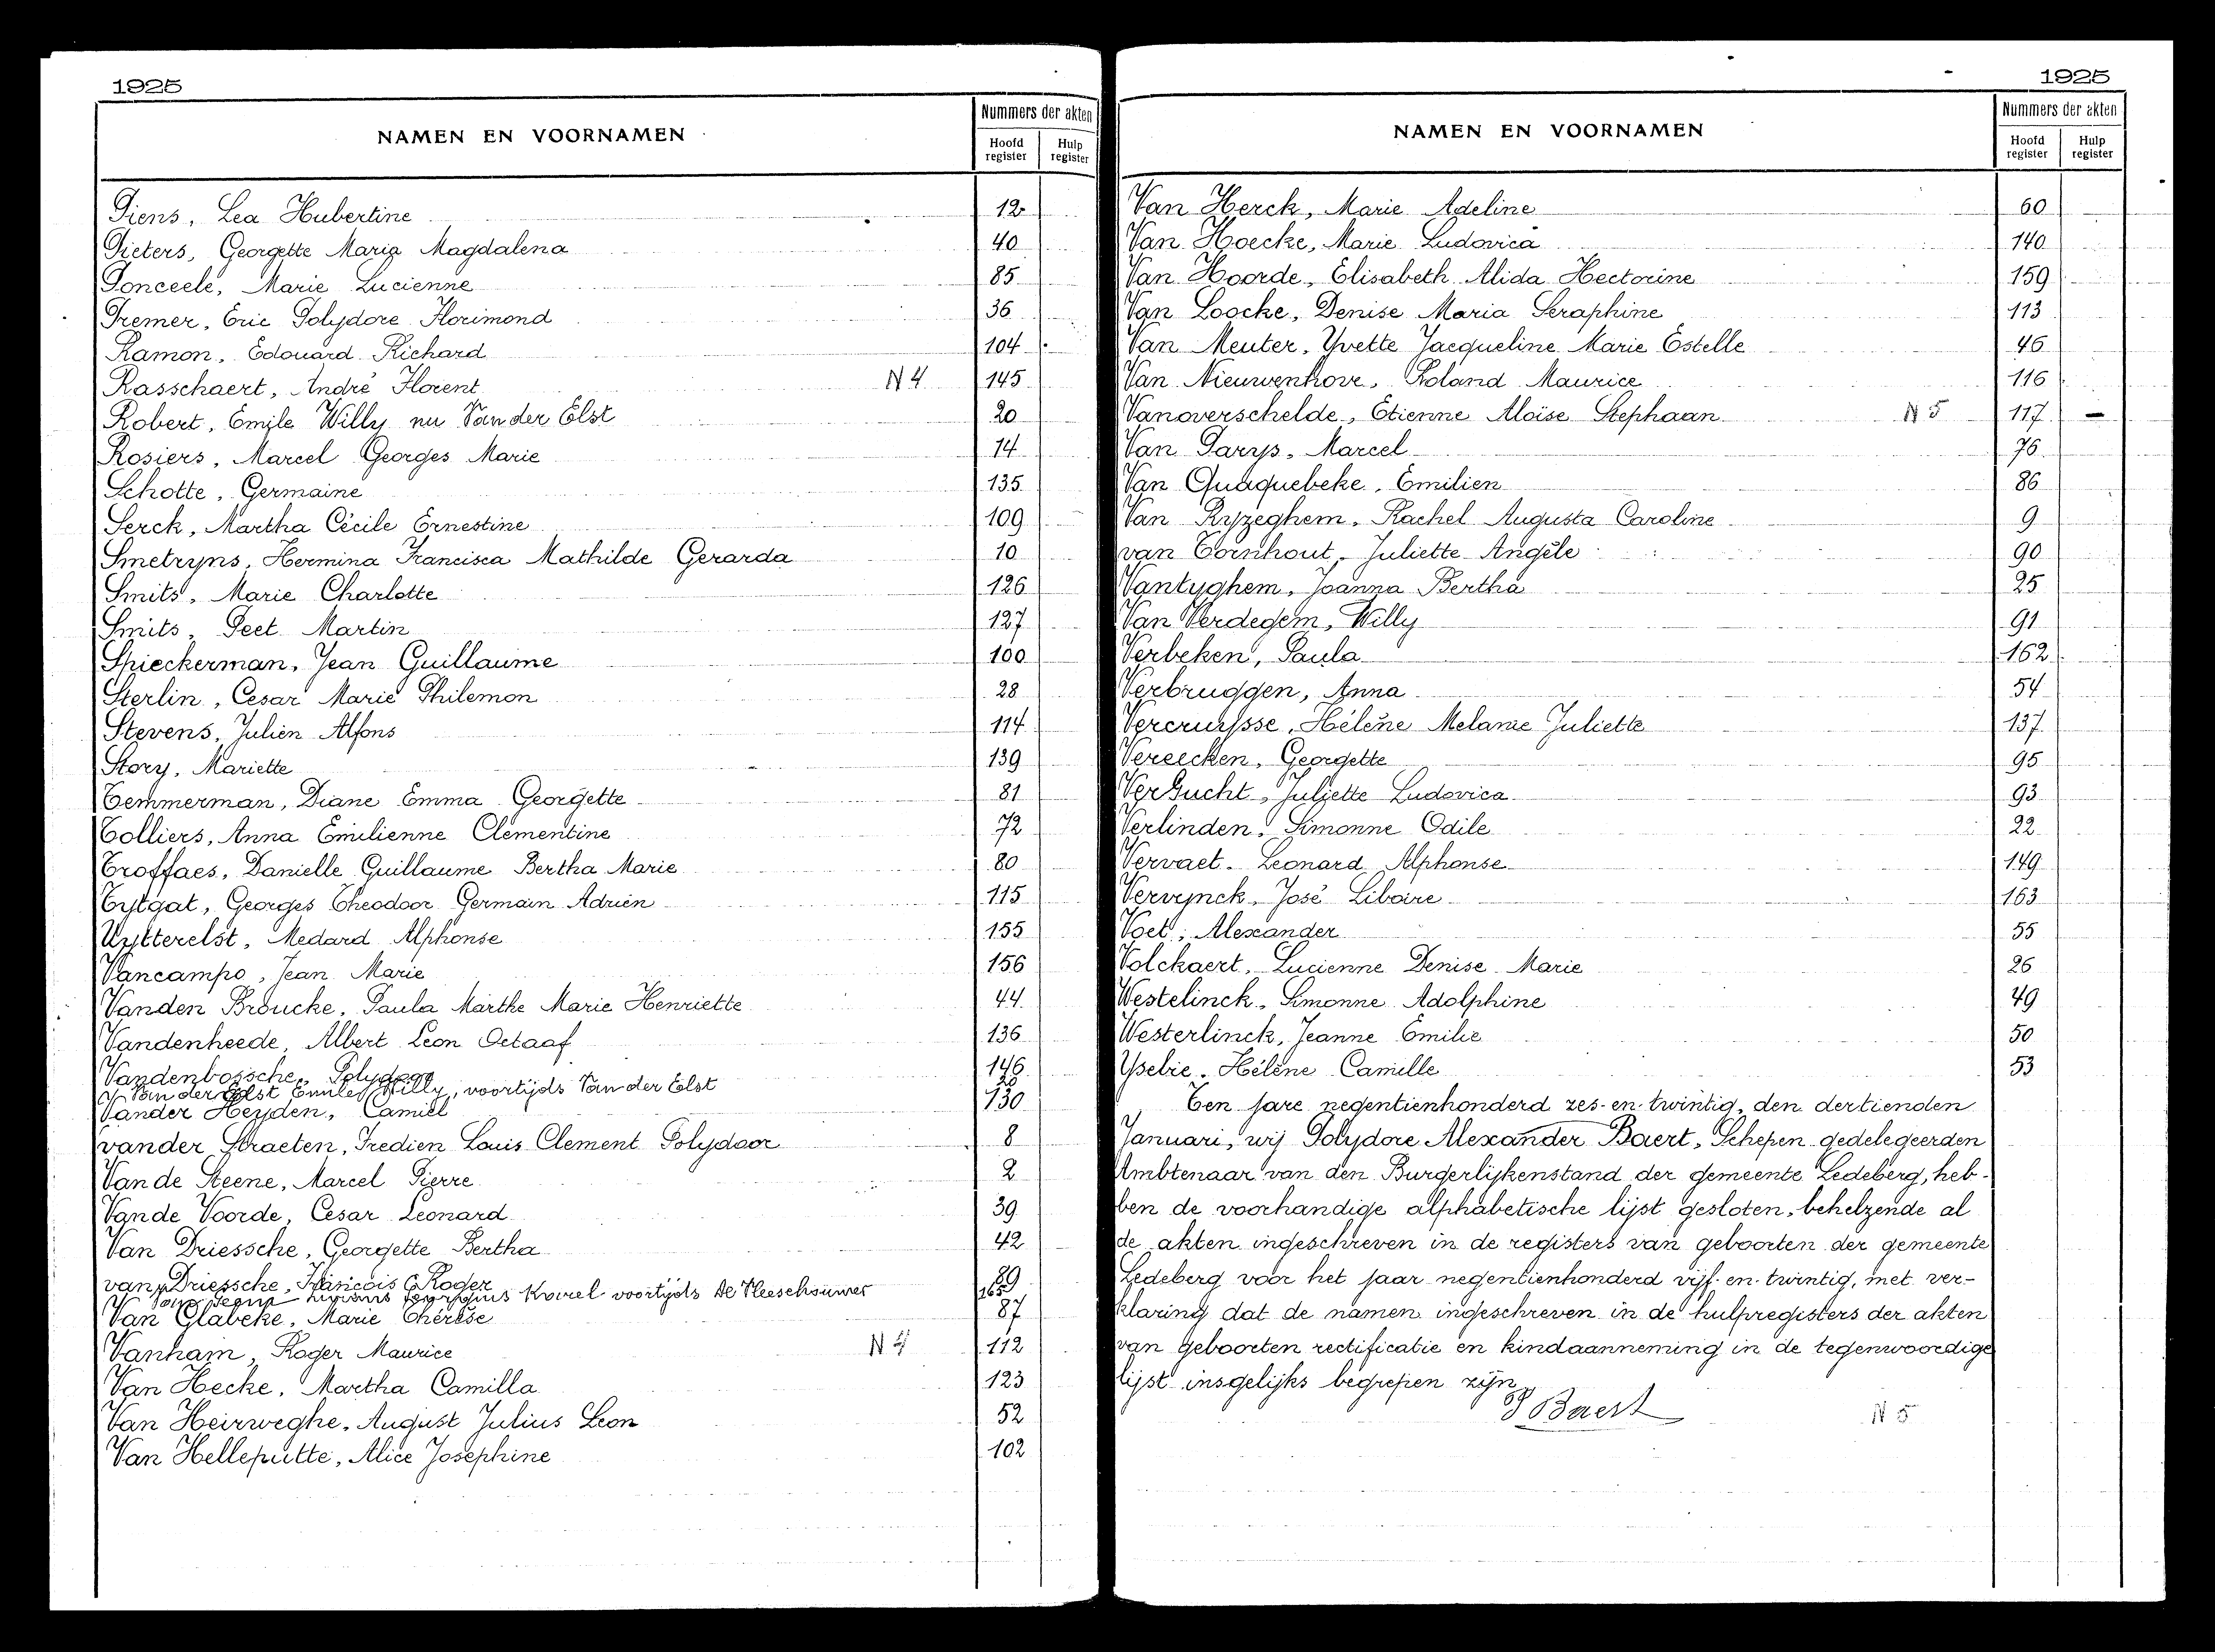 1925
NAMEN EN VOORNAMEN
Nummers der akten
Hoofd register
Hulp register
Piens, Lea Hubertine 12
Pieters, Georgette Maria Magdalena 40
Ponceele, Marie Lucienne 85
Premer, Eric Polydore Florimond 36
Ramon, Edouard Richard 104
Rasschaert, André Florent N 4 145
Robert, Emile Willy nu Van der Elst 20
Rosiers, Marcel Georges Marie 14
Schotte, Germaine 135
Serck, Martha Cécile Ernestine 109
Smetryns, Hermina Francisca Mathilde Gerarda 10
Smits, Marie Charlotte 126
Smits, Peet Martin 127
Spieckerman, Jean Guillaume 100
Sterlin, Cesar Marie Philemon 28
Stevens, Julien Alfons 114
Story, Mariette 139
Temmerman, Diane Emma Georgette 81
Tolliers, Anna Emilienne Clementine 72
Troffaes, Danielle Guillaume Bertha Marie 80
Tytgat, Georges Theodoor Germain Adrien 115
Uytterelst, Medard Alphonse 155
Vancampo, Jean Marie 156
Vanden Broucke, Paula Marthe Marie Henriette 44
Vandenheede, Albert Leon Octaaf 136
Vandenbossche, Polydoor 146
Van der Elst Emile Willy, voortijds Van der Elst 20
Vander Heyden, Camiel 130
vander Straeten, Fredien Louis Clement Polydoor 8
Van de Steene, Marcel Pierre 2
Van de Voorde, Cesar Leonard 39
Van Driessche, Georgette Bertha 42
van Driessche, François C. Roger 89
Karel voortijds De Vleeschouwer 165
Van Glabeke, Marie Thérèse 87
Vanham, Roger Maurice N 4 112
Van Hecke, Martha Camilla 123
Van Heirweghe, August Julius Leon 52
Van Helleputte, Alice Josephine 102
1925
NAMEN EN VOORNAMEN
Nummers der akten
Hoofd register
Hulp register
Van Herck, Marie Adeline 60
Van Hoecke, Marie Ludovica 140
Van Hoorde, Elisabeth Alida Hectorine 159
Van Loocke, Denise Maria Seraphine 113
Van Meuter, Yvette Jacqueline Marie Estelle 46
Van Nieuwenhove, Roland Maurice 116
Vanoverschelde, Etienne Aloïse Stephaan N 5 117 -
Van Parys, Marcel 76
Van Quaquebeke, Emilien 86
Van Ryzeghem, Rachel Augusta Caroline 9
van Tornhout, Juliette Angèle 90
Vantyghem, Joanna Bertha 25
Van Verdegem, Willy 91
Verbeken, Paula 162
Verbruggen, Anna 54
Vercruysse, Hélène Melanie Juliette 137
Vereecken, Georgette 95
VerGucht, Juliette Ludovica 93
Verlinden, Simonne Odile 22
Vervaet, Leonard Alphonse 149
Vervynck, José Liboire 163
Voet, Alexander 55
Volckaert, Lucienne Denise Marie 26
Westelinck, Simonne Adolphine 49
Westerlinck, Jeanne Emilie 50
Yselie, Hélène Camille 53
Ten jare negentienhonderd zes-en-twintig, den dertienden
Januari, wij Polydore Alexander Baert, Schepen gedelegeerden
Ambtenaar van den Burgerlijkenstand der gemeente Ledeberg, heb-
ben de voorhandige alphabetische lijst gesloten, behelzende al
de akten ingeschreven in de registers van geboorten der gemeente
Ledeberg voor het jaar negentienhonderd vijf-en-twintig, met ver-
klaring dat de namen ingeschreven in de hulpregisters der akten
van geboorten rectificatie en kindaanneming in de tegenwoordige
lijst insgelijks begrepen zijn
P Baert N 5